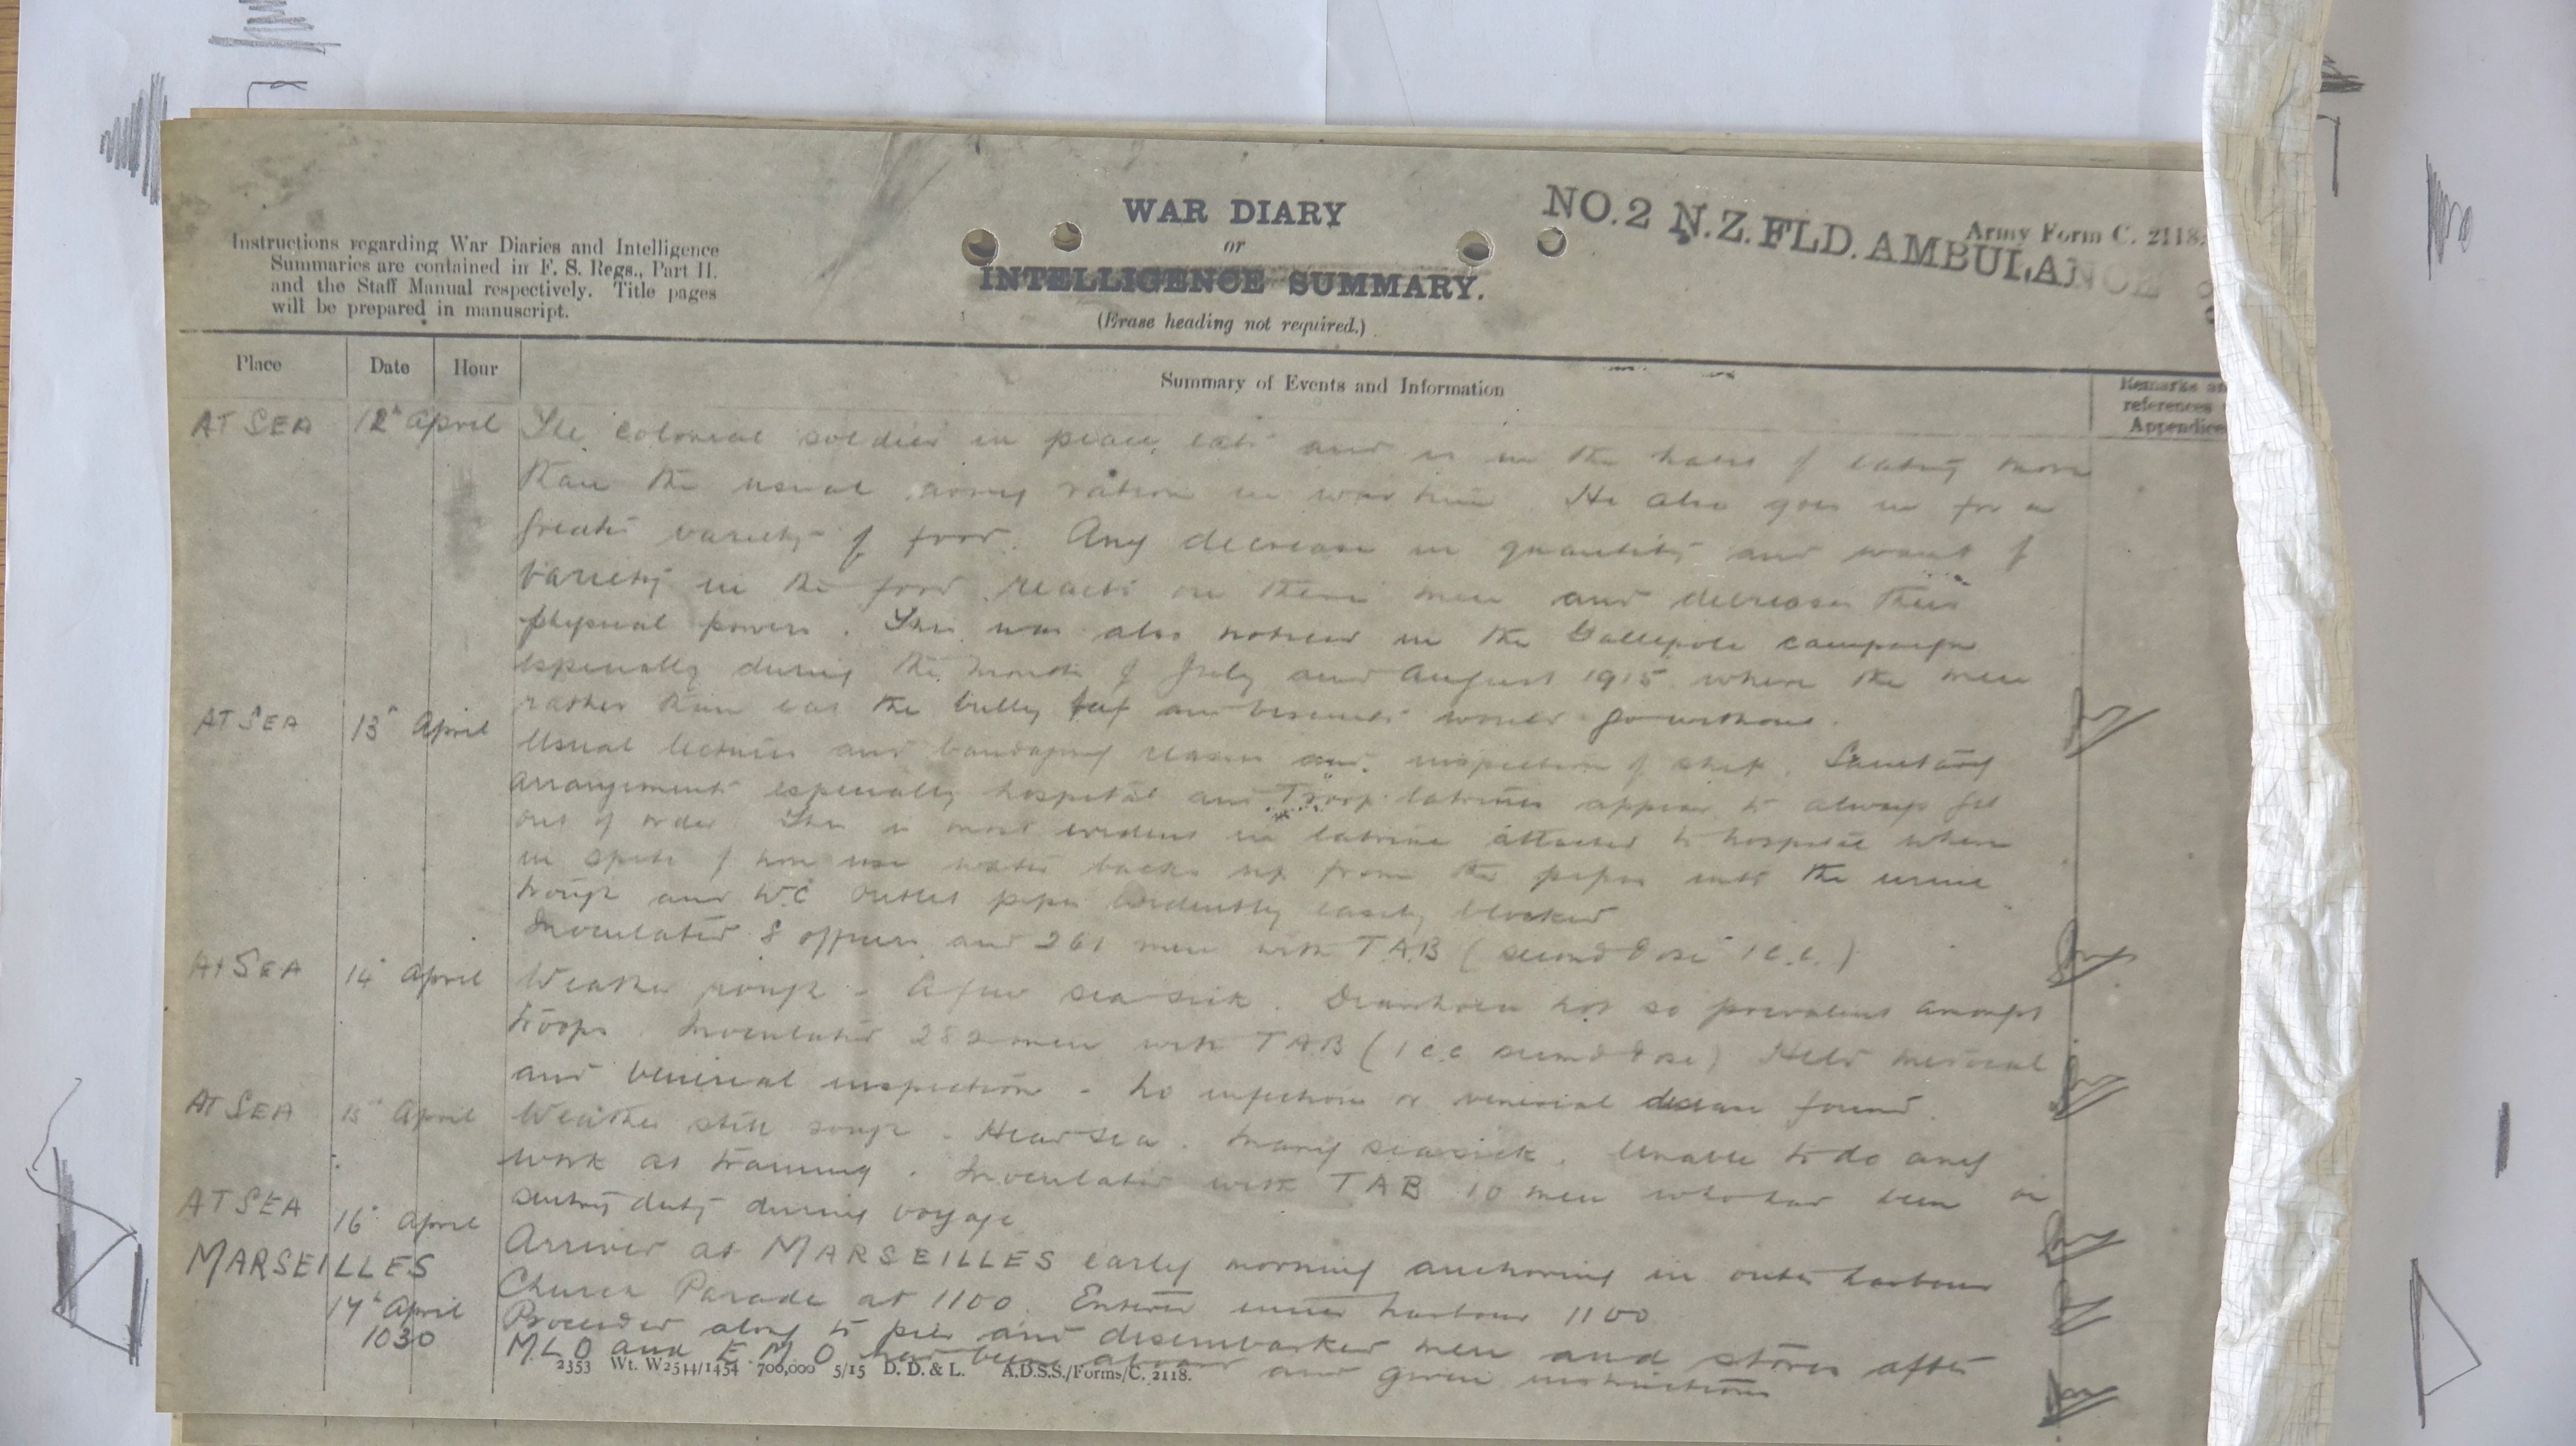 Instructions regarding War Diaries and Intelligence
Summaries are contained in F. S. Regs., Part II.
and the Staff Manual respectively. Title pages
will be prepared in manuscript.
WAR DIARY
or
INTELLIGENCE SUMMARY.
(Erase heading not required.)
NO. 2 N.Z. FLD. AMBULANCE
Army Form C. 2118.
Place Date Hour Summary of Events and Information
Remarks
references
Appendice
AT SEA 12th April The colonial soldier in peace eats and is in the habit of eating more
than the usual army ration in war time He also goes in for a
greater variety of food. Any decrease in quantity and want of
variety in the food reacts on these men and decreases their
physical powers. This was also noticed in the Gallipoli campaign
especially during the months of July and August 1915 where the men
rather than eat the bully beef and biscuits would go without.
AT SEA 13th April Usual lectures and bandaging classes and inspection of ship. Sanitary
arrangements especially hospital and Troop latrines appear to always get
out of order This is most evident in latrine attached to hospital where
in spite of non use water backs up from the pipes into the urine
trough and W.C outlet pipes evidently easily blocked
Inoculated 8 officers and 261 men with T.A.B (second dose 1 c.c.)
At SEA 14th April Weather rough - A few sea sick. Diarrhoea not so prevalent amongst
troops. Inoculated 282 men with TAB (1 c.c second dose) Held medical
and venereal inspection - no infections or venereal disease found.
AT SEA 15th April Weather still rough - Head sea. Many seasick. Unable to do any
work at training. Inoculated with TAB 10 men who had been on
sentry duty during voyage
AT SEA 16th April Arrived at MARSEILLES early morning anchoring in outer harbour
MARSEILLES Church Parade at 1100. Entered inner harbour 1100
17th April Proceeded along to pier and disembarked men and stores after
1030 M L O and E M O had been aboard and given instructions
2353 Wt. W2544/1454 700,000 5/15 D. D. & L. A.D.S.S./Forms/C. 2118.